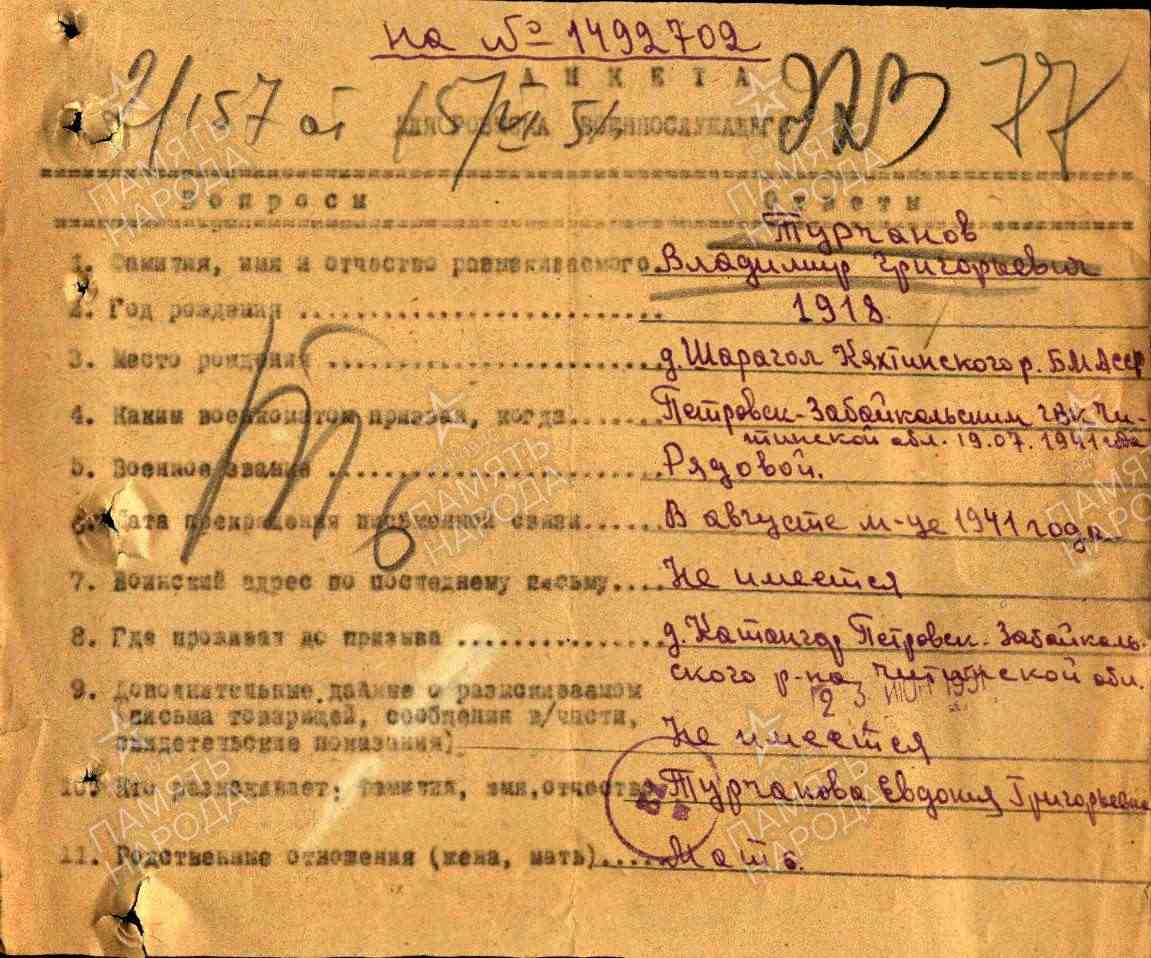 на № 1492702
АНКЕТА
21/157 от 15/VII 51
РОЗЫСКА ВОЕННОСЛУЖАЩЕГО
77
Вопросы Ответы
Турчанов
1. Фамилия, имя и отчество разыскиваемого Владимир Григорьевич
2. Год рождения ........................ 1918.
3. Место рождения ..................... д. Шарагол Кяхтинского р. БМАССР
4. Каким военкоматом призван, когда...... Петровск-Забайкальским ГВК Чи-
тинской обл. 19.07.1941 года
5. Военное звание ..................... Рядовой.
6. Дата прекращения письменной связи..... В августе м-це 1941 года.
7. Воинский адрес по последнему письму.... Не имеется
8. Где проживал до призыва ............. д. Катангар Петровск-Забайкаль-
ского р-на Читинской обл.
9. Дополнительные данные о разыскиваемом
(письма товарищей, сообщения в/части,
свидетельские показания) Не имеется
10. Кто разыскивает: фамилия, имя, отчество Турчанова Евдокия Григорьевна
11. Родственные отношения (жена, мать)..... Мать.
ПАМЯТЬ НАРОДА